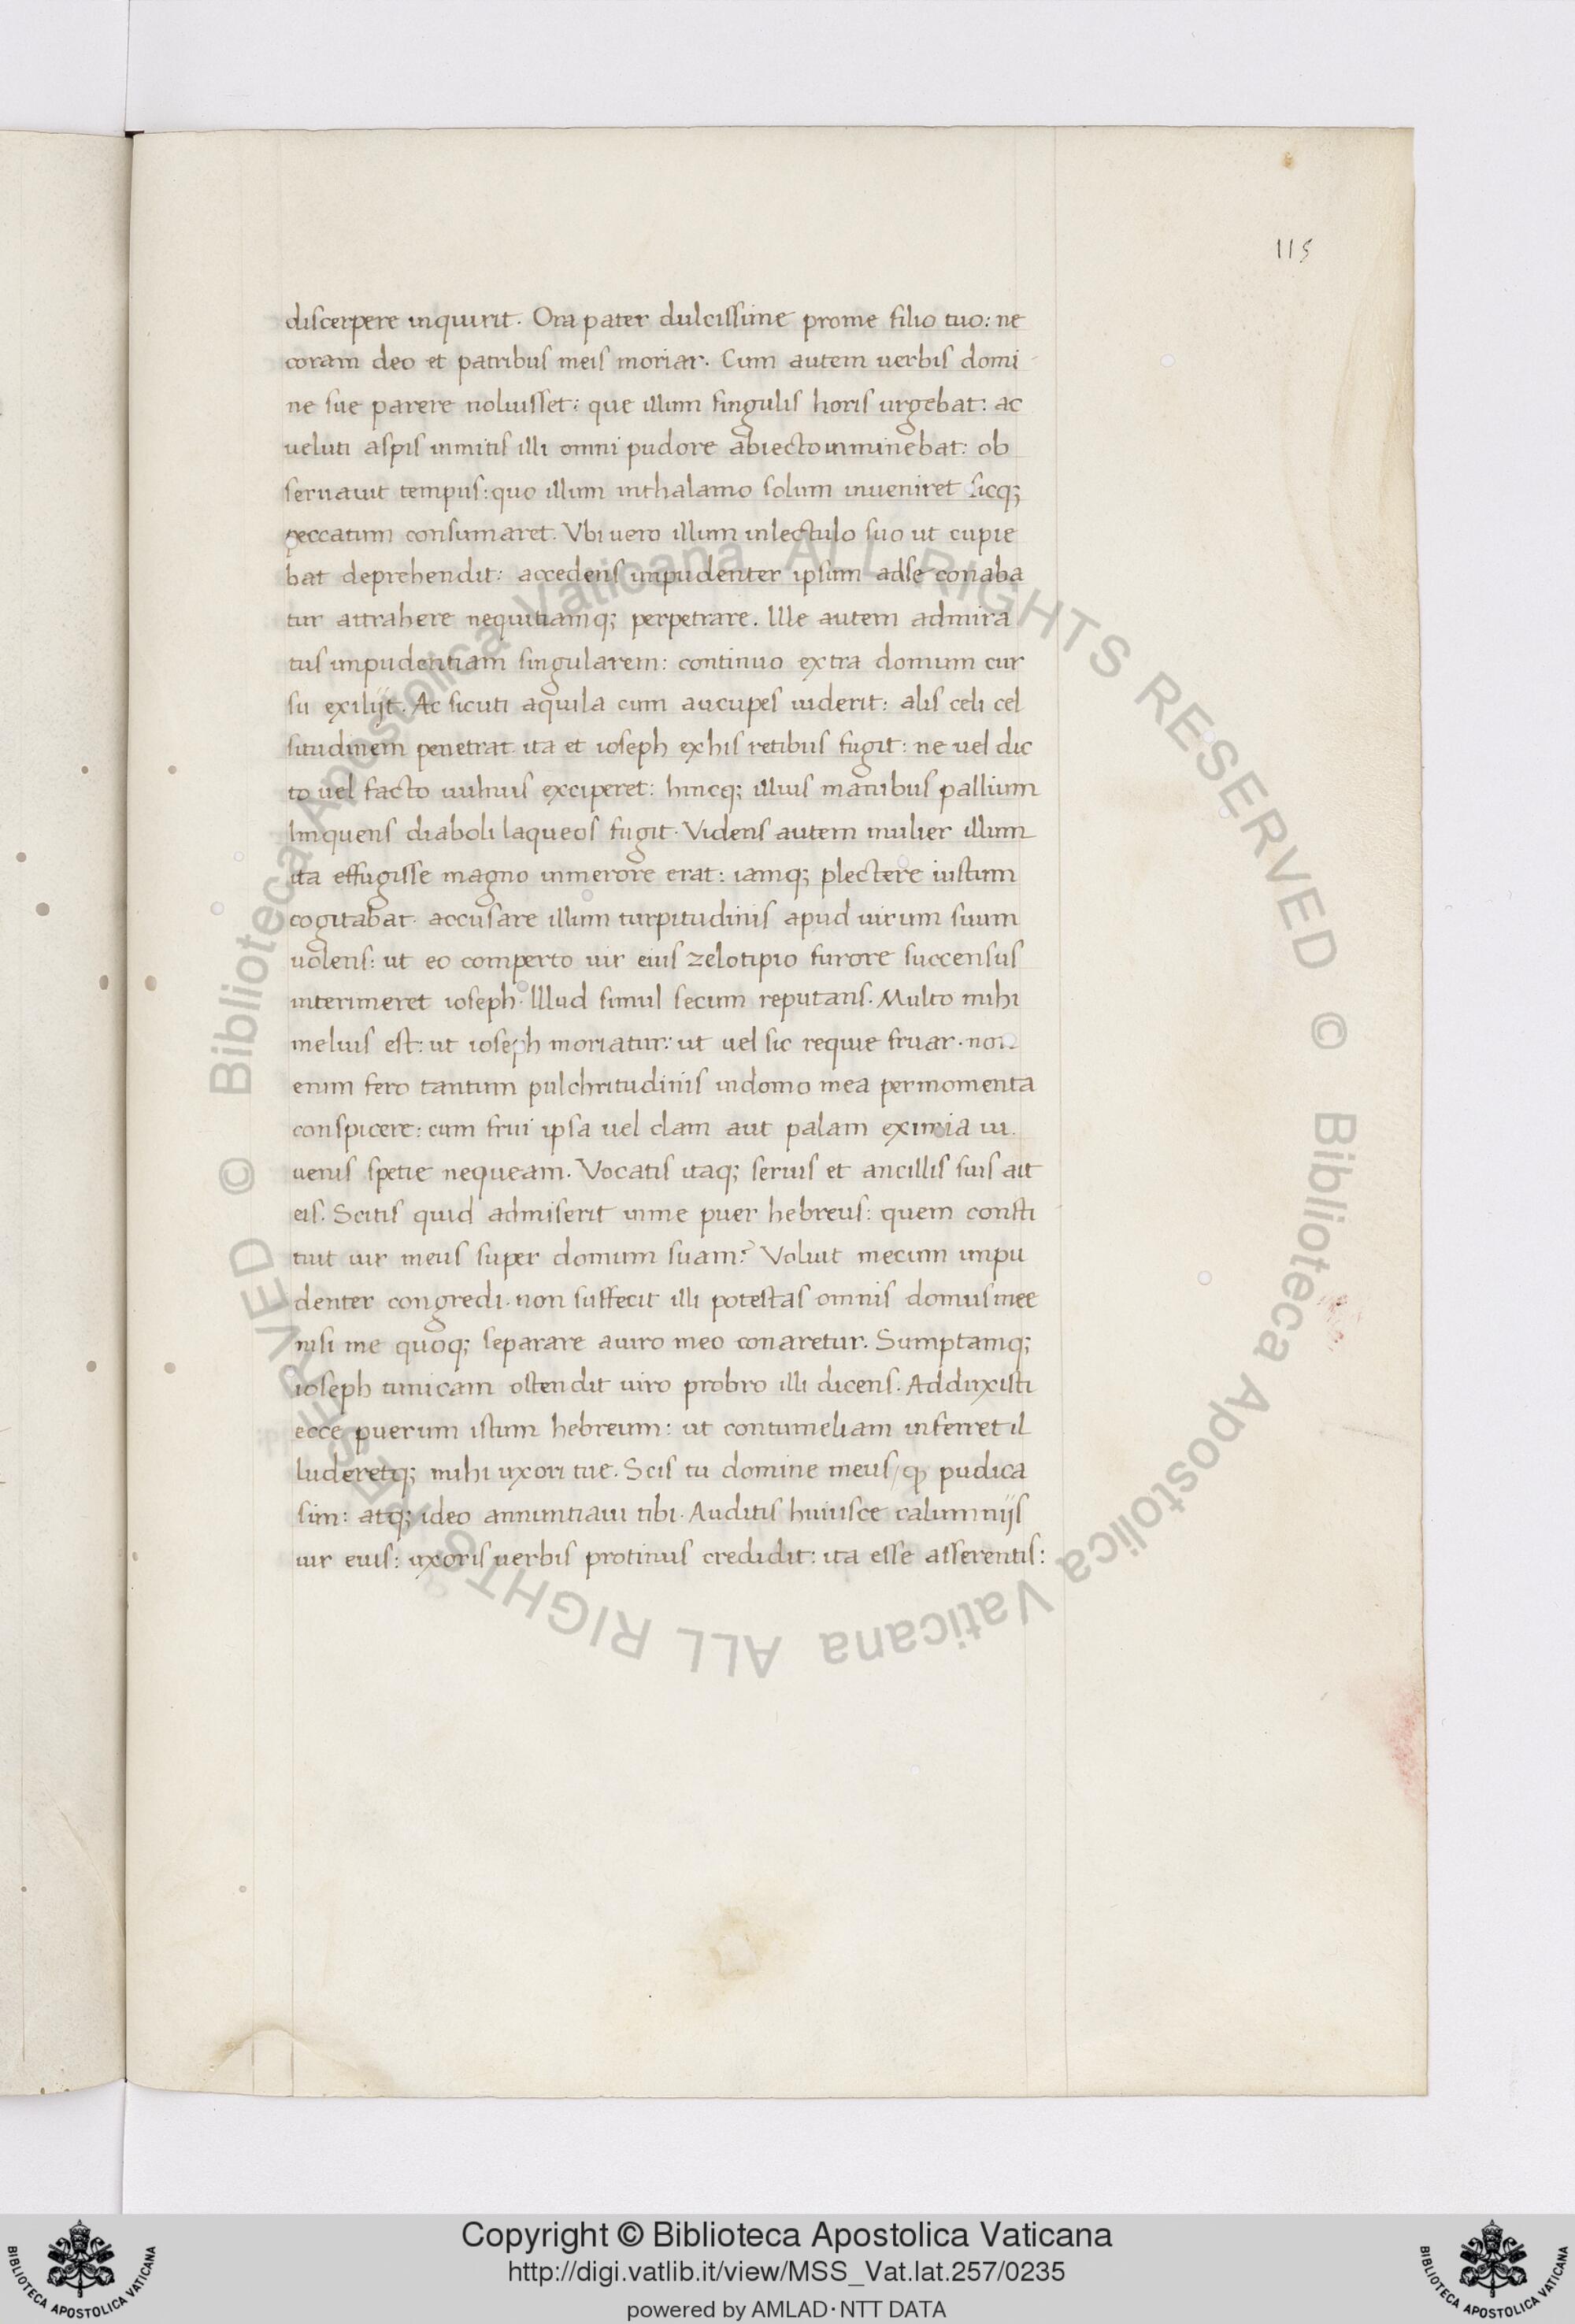 115
discerpere inquirit. Ora pater dulcissime prome filio tuo: ne
coram deo et patribus meis moriar. Cum autem uerbis domi
ne sue parere noluisset: que illum singulis horis urgebat: ac
ueluti aspis inmitis illi omni pudore abiecto inminebat: ob
seruauit tempus: quo illum inthalamo solum inueniret sicq;
peccatum consumaret. Vbi uero illum inlectulo suo ut cupie
bat deprehendit: accedens impudenter ipsum adse conaba
tur attrahere nequitiamq; perpetrare. Ille autem admira
tus impudentiam singularem: continuo extra domum cur
su exilijt. Ac sicuti aquila cum aucupes uiderit: alis celi cel
situdinem penetrat ita et ioseph exhis retibus fugit: ne uel dic
to uel facto uulnus exciperet: hincq; illius manibus pallium
linquens diaboli laqueos fugit. Videns autem mulier illum
ita effugisse magno inmerore erat: iamq; plectere iustum
cogitabat. accusare illum turpitudinis apud uirum suum
uolens: ut eo comperto uir eius zelotipio furore succensus
interimeret ioseph. Illud simul secum reputans. Multo mihi
melius est: ut ioseph moriatur: ut uel sic requie fruar. non
enim fero tantum pulchritudinis indomo mea permomenta
conspicere: cum frui ipsa uel clam aut palam eximia iu
uenis spetie nequeam. Vocatis itaq; seruis et ancillis suis ait
eis. Scitis quid admiserit inme puer hebreus: quem consti
tuit uir meus super domum suam? Voluit mecum impu
denter congredi. non suffecit illi potestas omnis domus mee
nisi me quoq; separare auiro meo conaretur. Sumptamq;
ioseph tunicam ostendit uiro probro illi dicens. Adduxisti
ecce puerum istum hebreum: ut contumeliam inferret il
luderetq; mihi uxori tue. Scis tu domine meus/ ꝙ pudica
sim: atq; ideo annuntiaui tibi. Auditis huiusce calumnijs
uir euis: uxoris uerbis protinus credidit: ita esse asserentis:
© Biblioteca Apostolica Vaticana ALL RIGHTS RESERVED
© Biblioteca Apostolica Vaticana ALL RIGHTS RESERVED
BIBLIOTECA APOSTOLICA VATICANA
Copyright © Biblioteca Apostolica Vaticana
http://digi.vatlib.it/view/MSS_Vat.lat.257/0235
powered by AMLAD·NTT DATA
BIBLIOTECA APOSTOLICA VATICANA